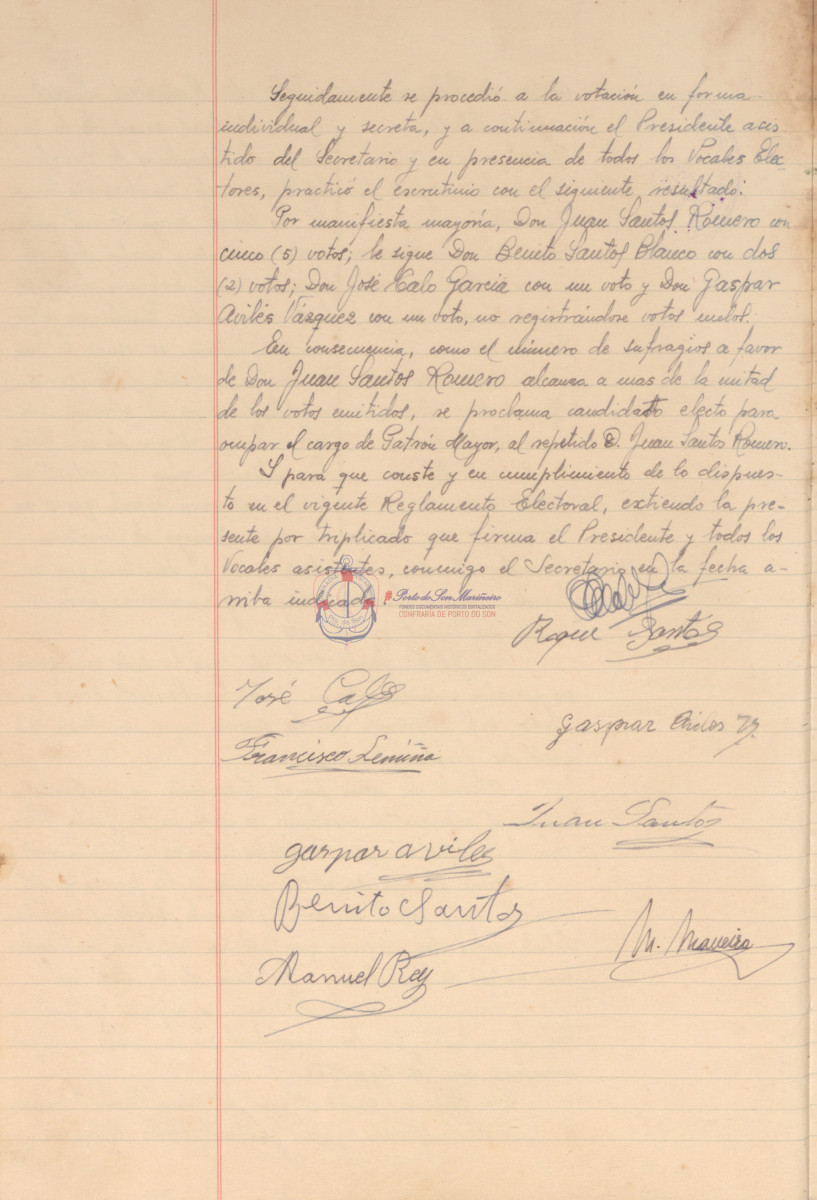 Seguidamente se procedió a la votación en forma
individual y secreta, y a continuación el Presidente asis-
tido del Secretario y en presencia de todos los Vocales Elec-
tores, practicó el escrutinio con el siguiente resultado:
Por manifiesta mayoría, Don Juan Santos Romero con
cinco (5) votos; le sigue Don Benito Santos Blanco con dos
(2) votos; Don José Calo García con un voto y Don Gaspar
Avilés Vázquez con un voto, no registrándose votos nulos.
En consecuencia, como el número de sufragios a favor
de Don Juan Santos Romero alcanza a mas de la mitad
de los votos emitidos, se proclama candidato electo para
ocupar el cargo de Patrón Mayor, al repetido D. Juan Santos Romero.
Y para que conste y en cumplimiento de lo dispues-
to en el vigente Reglamento Electoral, extiendo la pre-
sente por triplicado que firma el Presidente y todos los
Vocales asistentes, conmigo el Secretario en la fecha a-
rriba indicada.
Porto do Son Mariñeiro
FONDOS DOCUMENTAIS HISTÓRICOS DIXITALIZADOS
CONFRARÍA DE PORTO DO SON
Roque Santos
José Calo
Gaspar Aviles
Francisco Lemiña
Juan Santos
gaspar aviles
Benito Santos
M. Maneiro
Manuel Rey